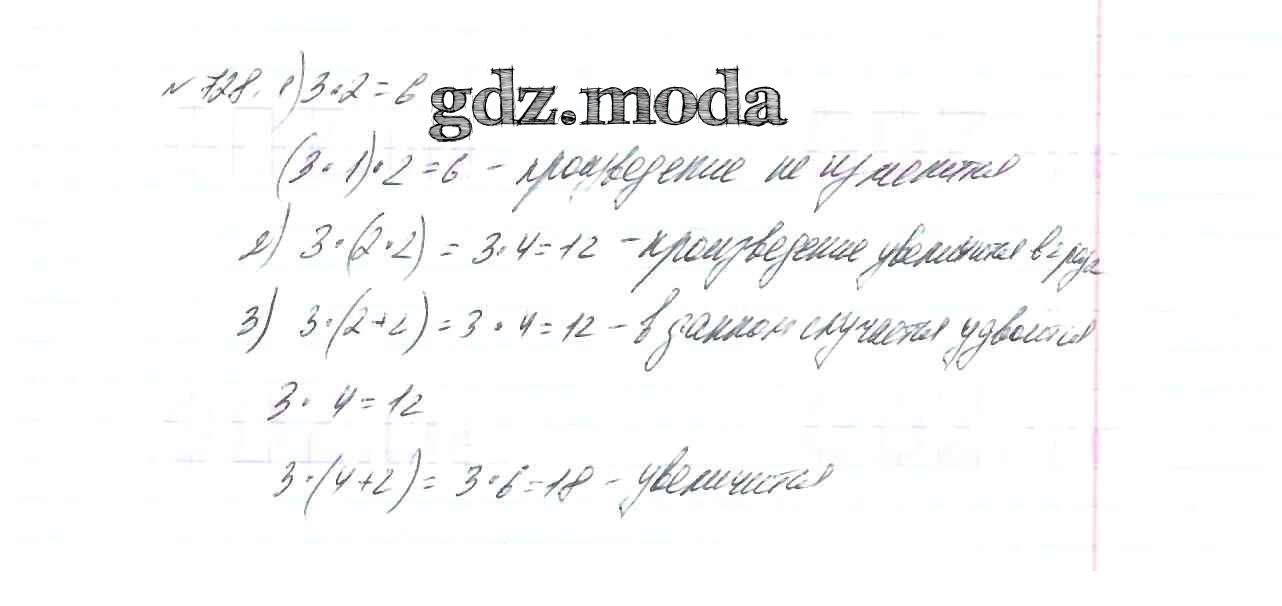 № 728. 1) 3·2=6 gdz.moda
(3·1)·2=6 – произведение не изменится
2) 3·(2·2) = 3·4=12 – произведение увеличится в 2 раза
3) 3·(2+2) = 3·4=12 – в данном случается удвоится
3·4=12
3·(4+2) = 3·6=18 – увеличится